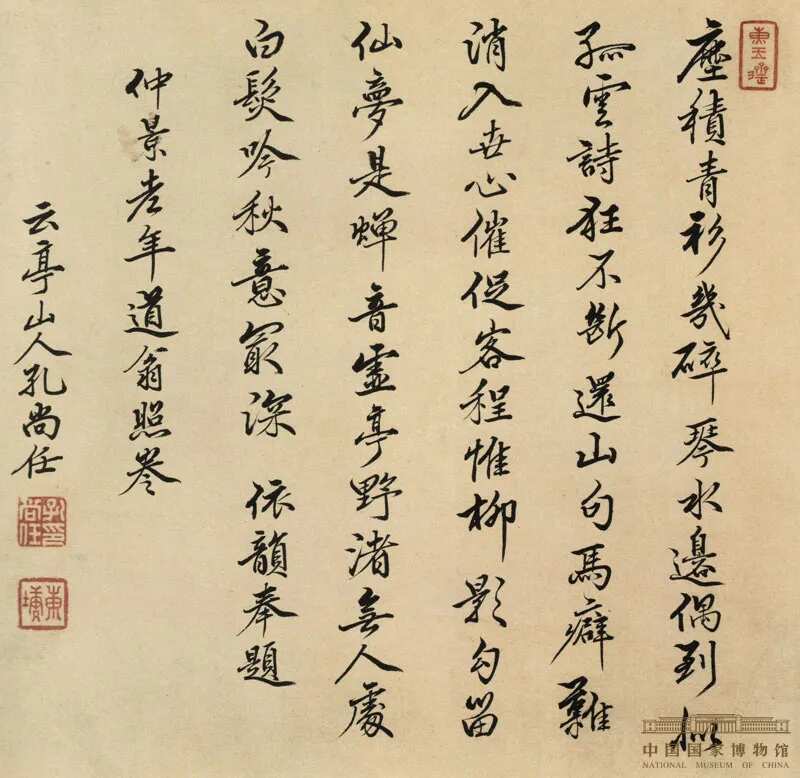 塵積青衫幾碎琴水邊偶到似
孤雲詩狂不斷還山句馬癖難
消入世心催促客程惟柳影勾留
仙夢是蟬音虛亭野渚無人處
白髮吟秋意最深 依韻奉題
仲景老年道翁照
云亭山人孔尚任
孔印尚任
東塘
中国国家博物馆
NATIONAL MUSEUM OF CHINA